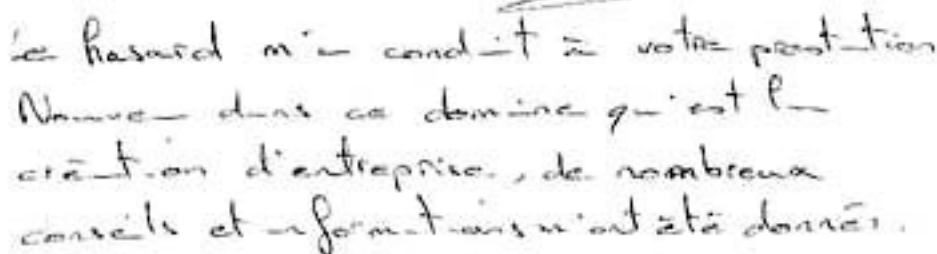 Le hasard m'a conduit à votre prestation
Nouveau dans ce domaine qu'est la
création d'entreprise, de nombreux
conseils et informations m'ont été donnés.